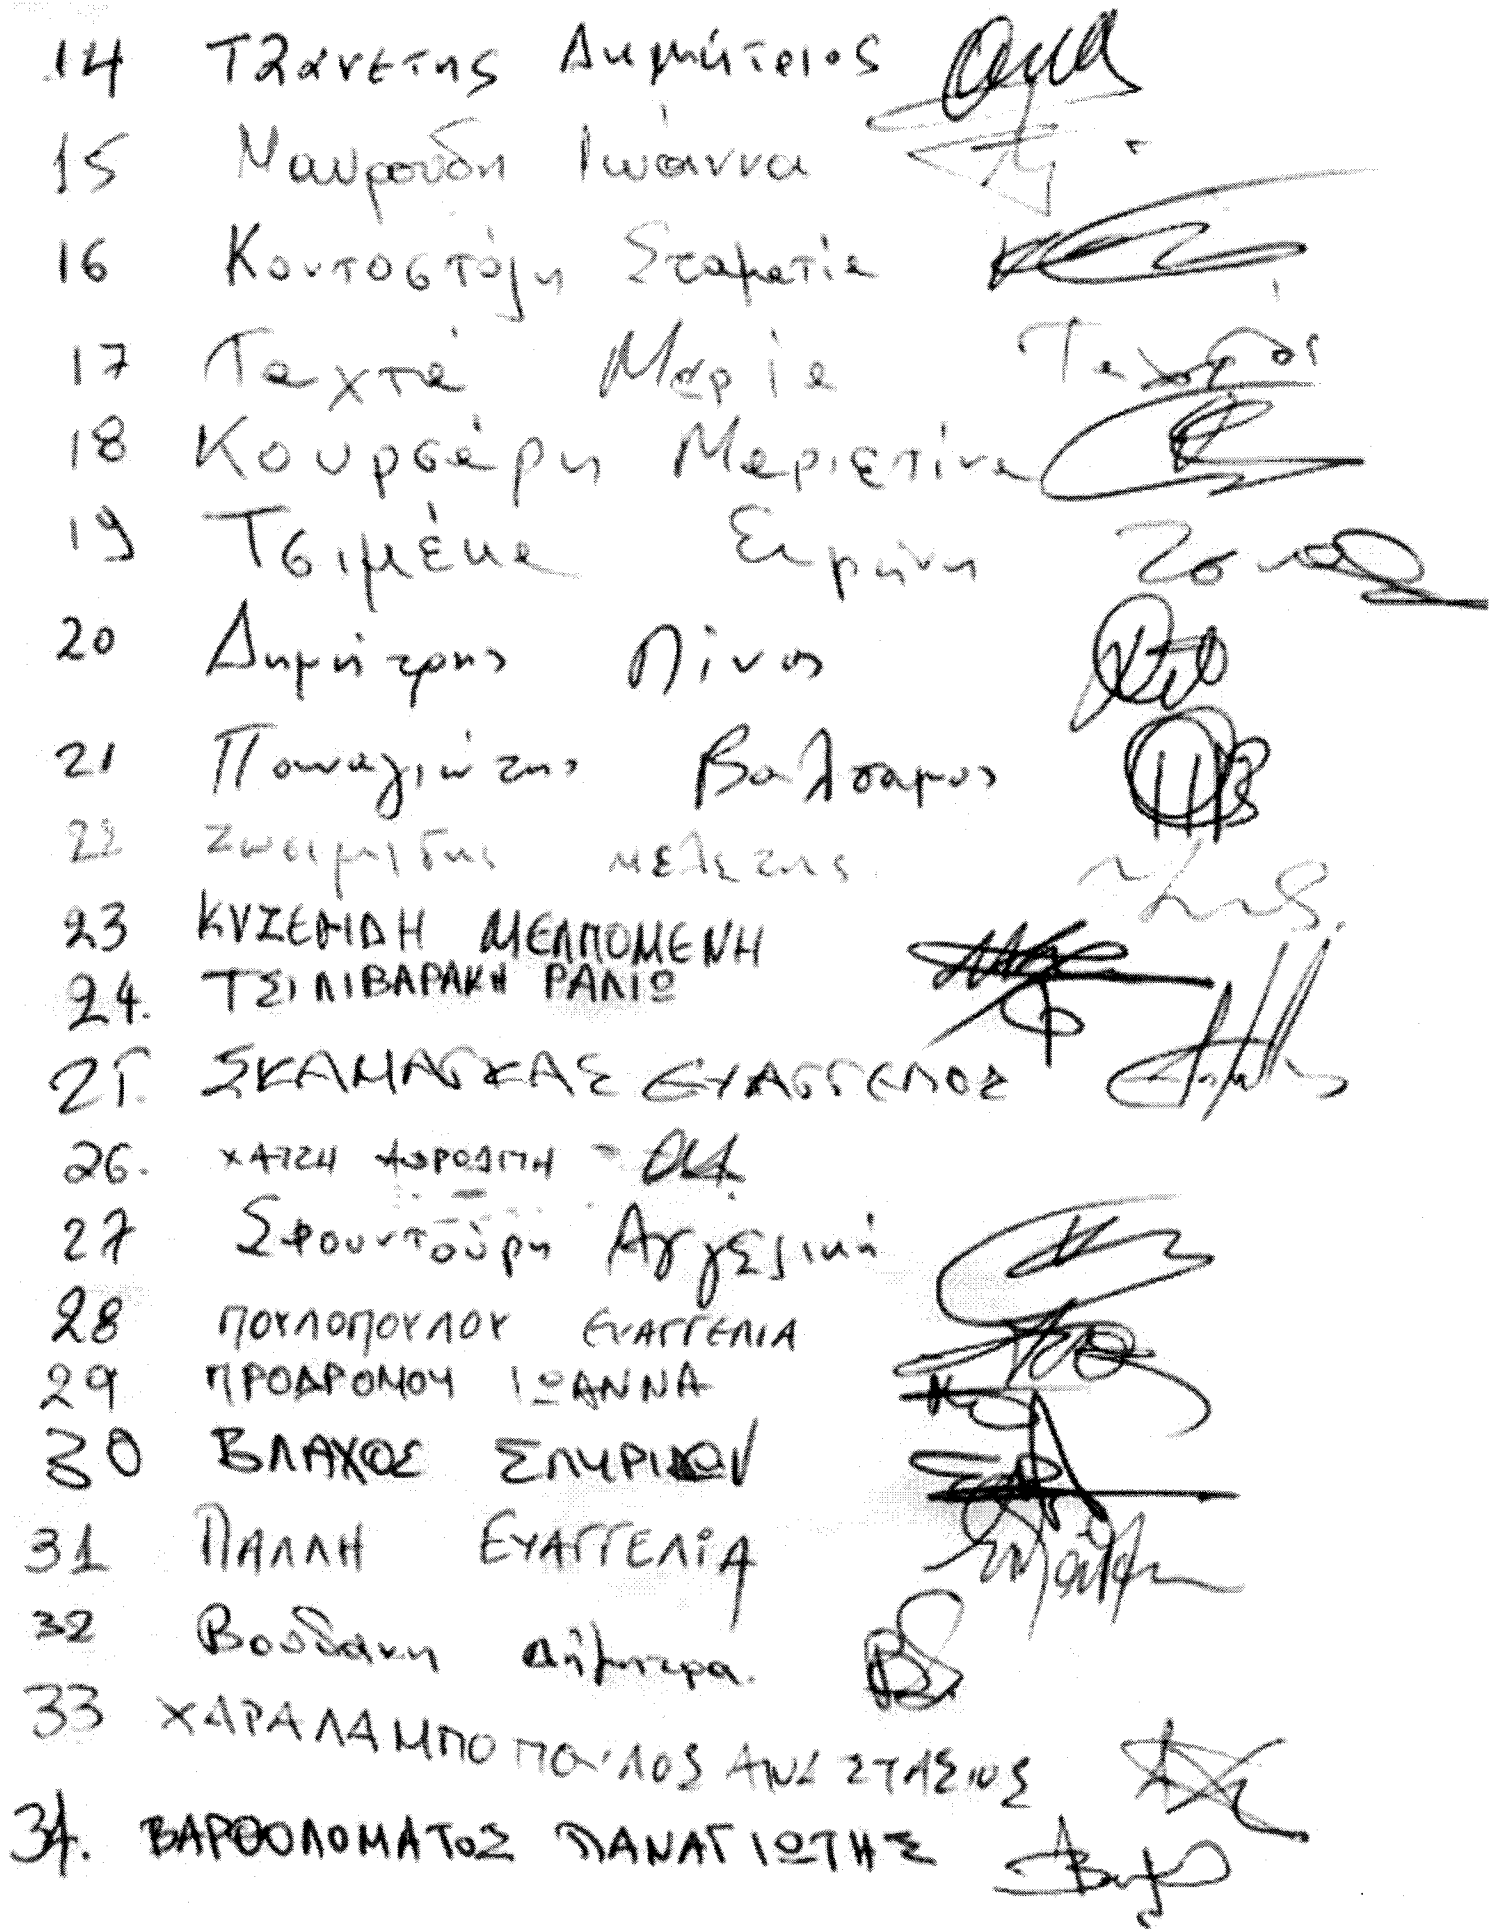 14 Τζανέτης Δημήτριος
15 Μαυρουδή Ιωάννα
16 Κοντοστόλη Σταματία
17 Ταχτά Μαρία
18 Κουρσάρη Μαριετίνα
19 Τσιμέκα Ειρήνη
20 Δημήτρης Πίνος
21 Παναγιώτης Βαλσαμος
22 Ζωσιμιδης Μελετης
23 ΚΥΖΕΡΙΔΗ ΜΕΛΠΟΜΕΝΗ
24. ΤΣΙΛΙΒΑΡΑΚΗ ΡΑΛΙΩ
25. ΣΚΑΜΑΓΚΑΣ ΕΥΑΓΓΕΛΟΣ
26. ΧΑΤΖΗ ΑΦΡΟΔΙΤΗ
27 Σφουντούρη Αγγελική
28 ΠΟΥΛΟΠΟΥΛΟΥ ΕΥΑΓΓΕΛΙΑ
29 ΠΡΟΔΡΟΜΟΥ ΙΩΑΝΝΑ
30 ΒΛΑΧΟΣ ΣΠΥΡΙΔΩΝ
31 ΠΑΛΛΗ ΕΥΑΓΓΕΛΙΑ
32 Βουδακη Δήμητρα.
33 ΧΑΡΑΛΑΜΠΟΠΟΥΛΟΣ ΑΝΑΣΤΑΣΙΟΣ
34. ΒΑΡΘΟΛΟΜΑΤΟΣ ΠΑΝΑΓΙΩΤΗΣ